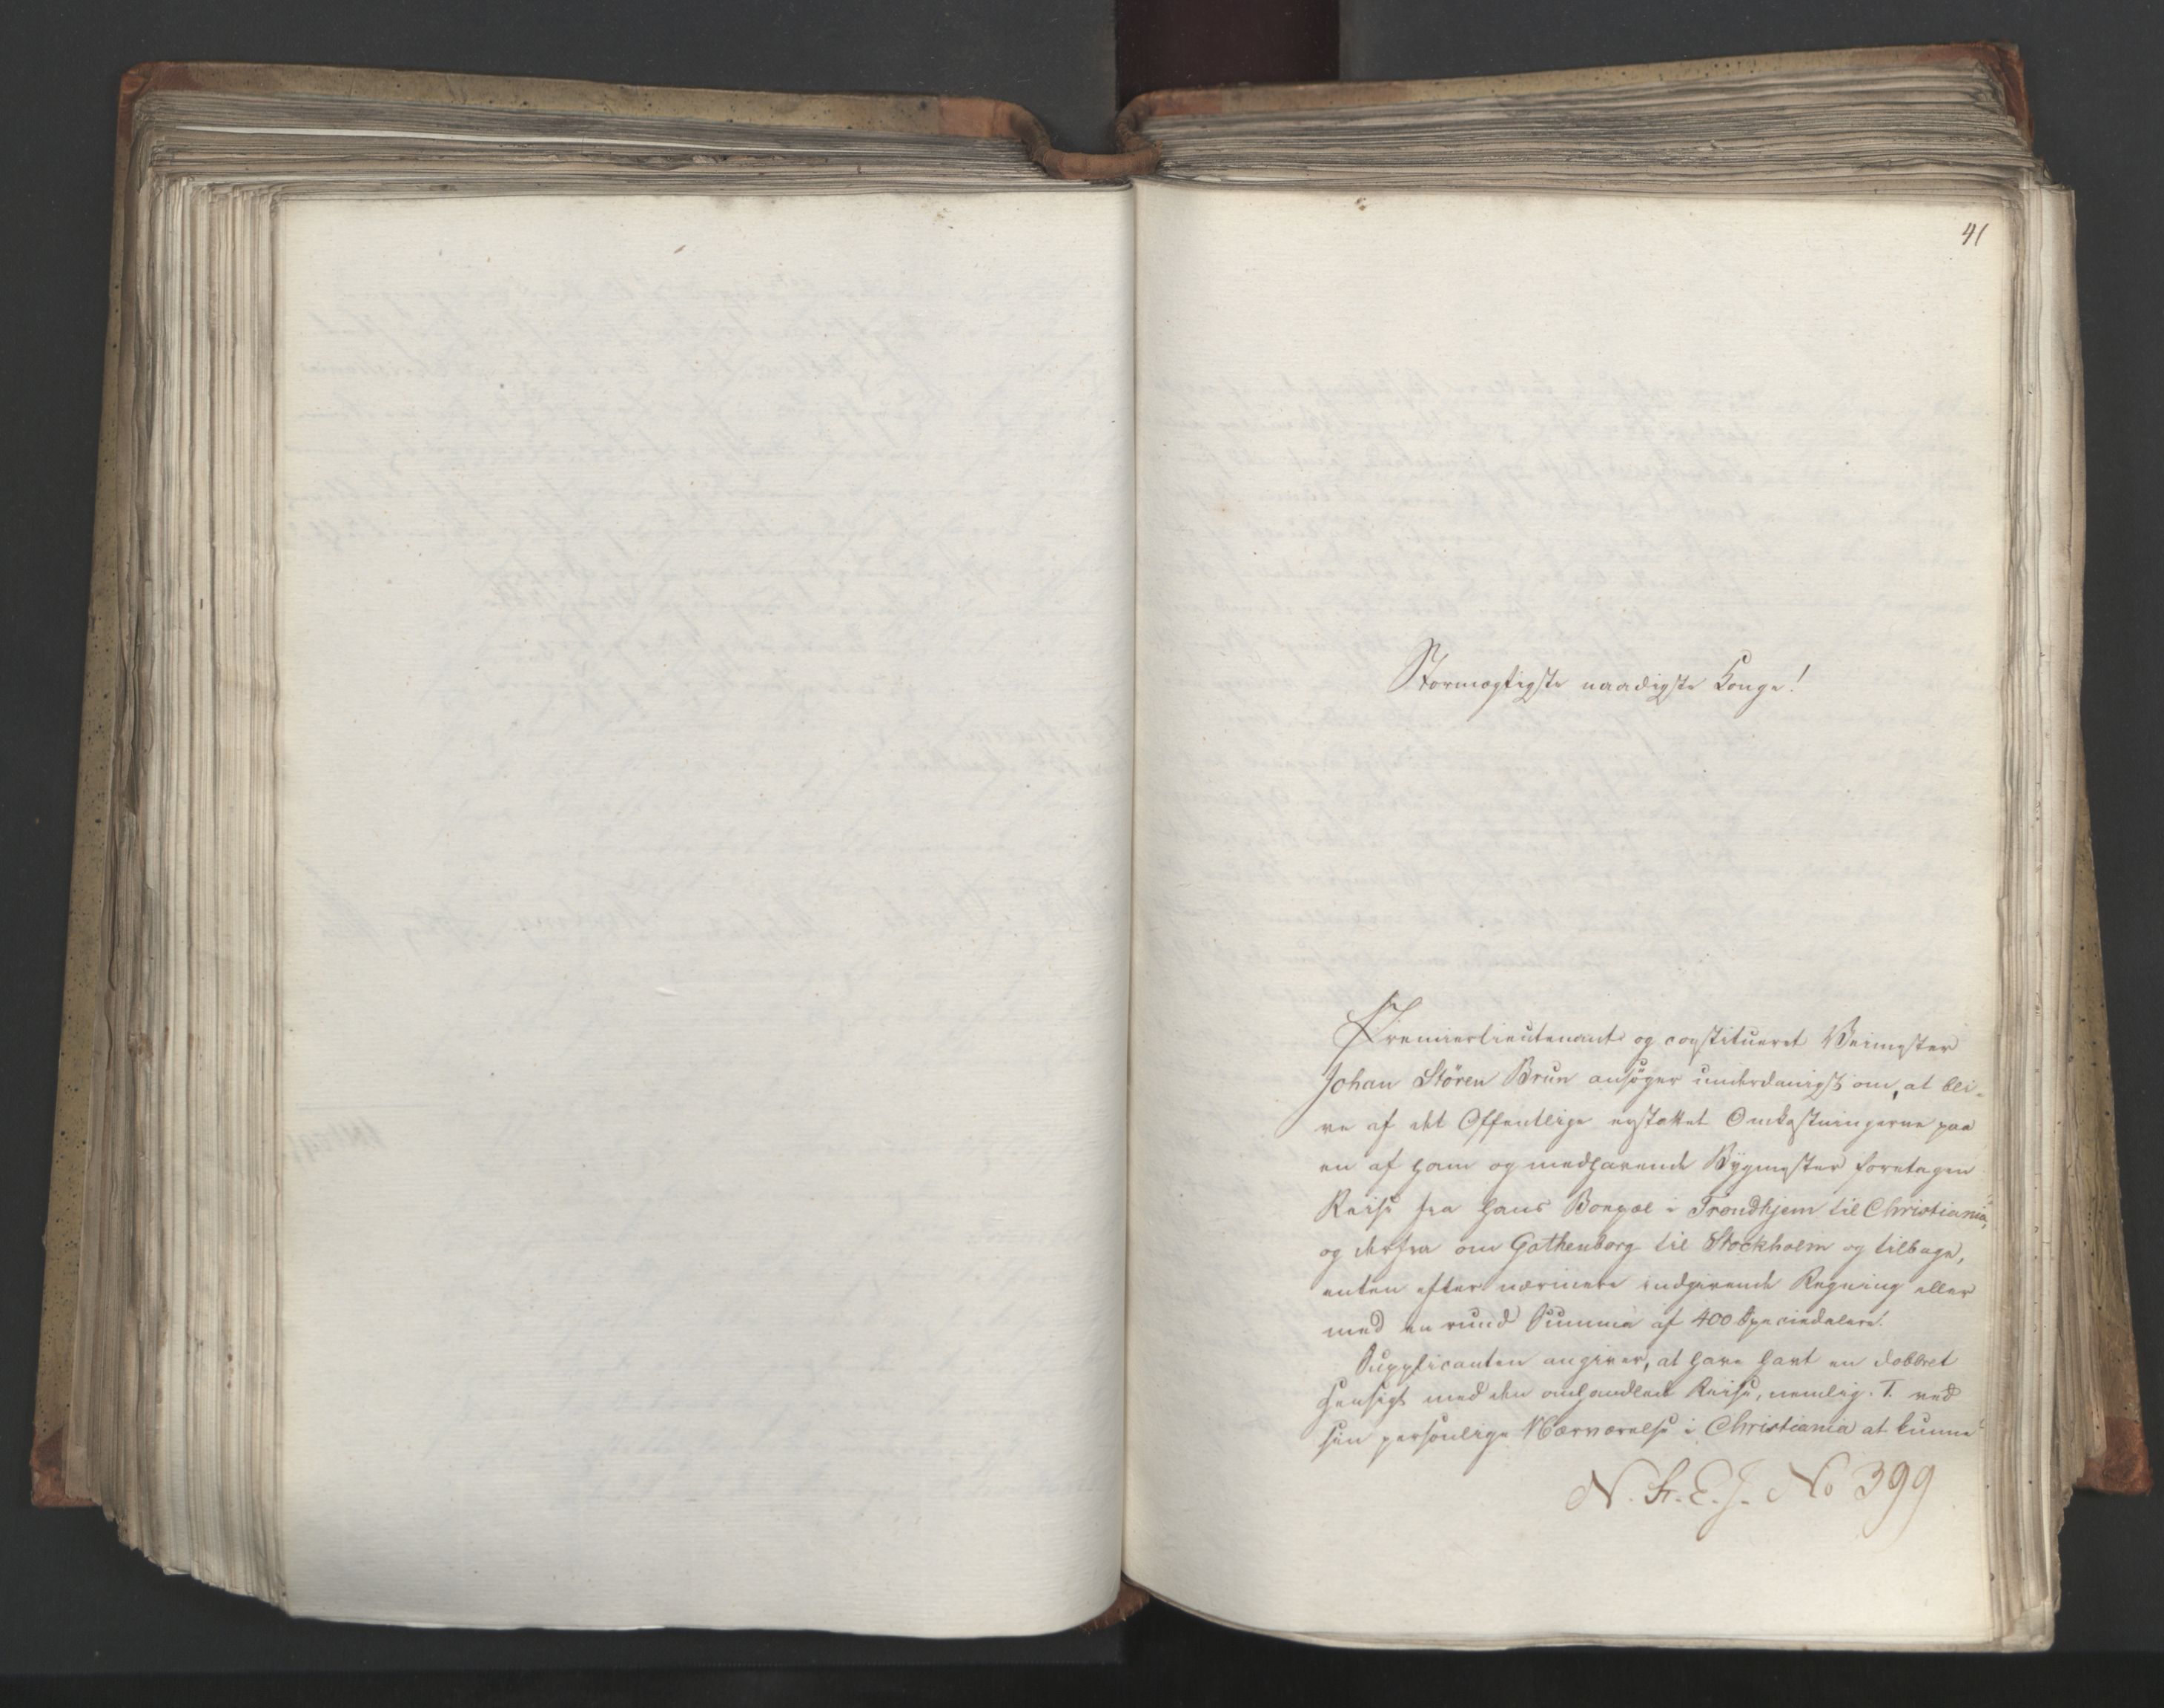 41
Stormægtigste naadigste Konge!
Premierlieutenant og constitueret Veimester
Johan Stören Brun ansøger underdanigst om, at bli-
ve af det Offentlige erstattet Omkostningerne paa
en af ham og medhavende Bygmester foretagen
Reise fra hans Bopæl i Trondhjem til Christiania,
og derfra om Gothenborg til Stockholm og tilbage,
enten efter nærmere indgivende Regning eller
med en rund Summa af 400 Speciedalere.
Supplicanten angiver, at have havt en dobbelt
Hensigt med den omhandlede Reise, nemlig: 1. ved
sin personlige Nærværelse i Christiania at kunne
N. St. E. J. No 399